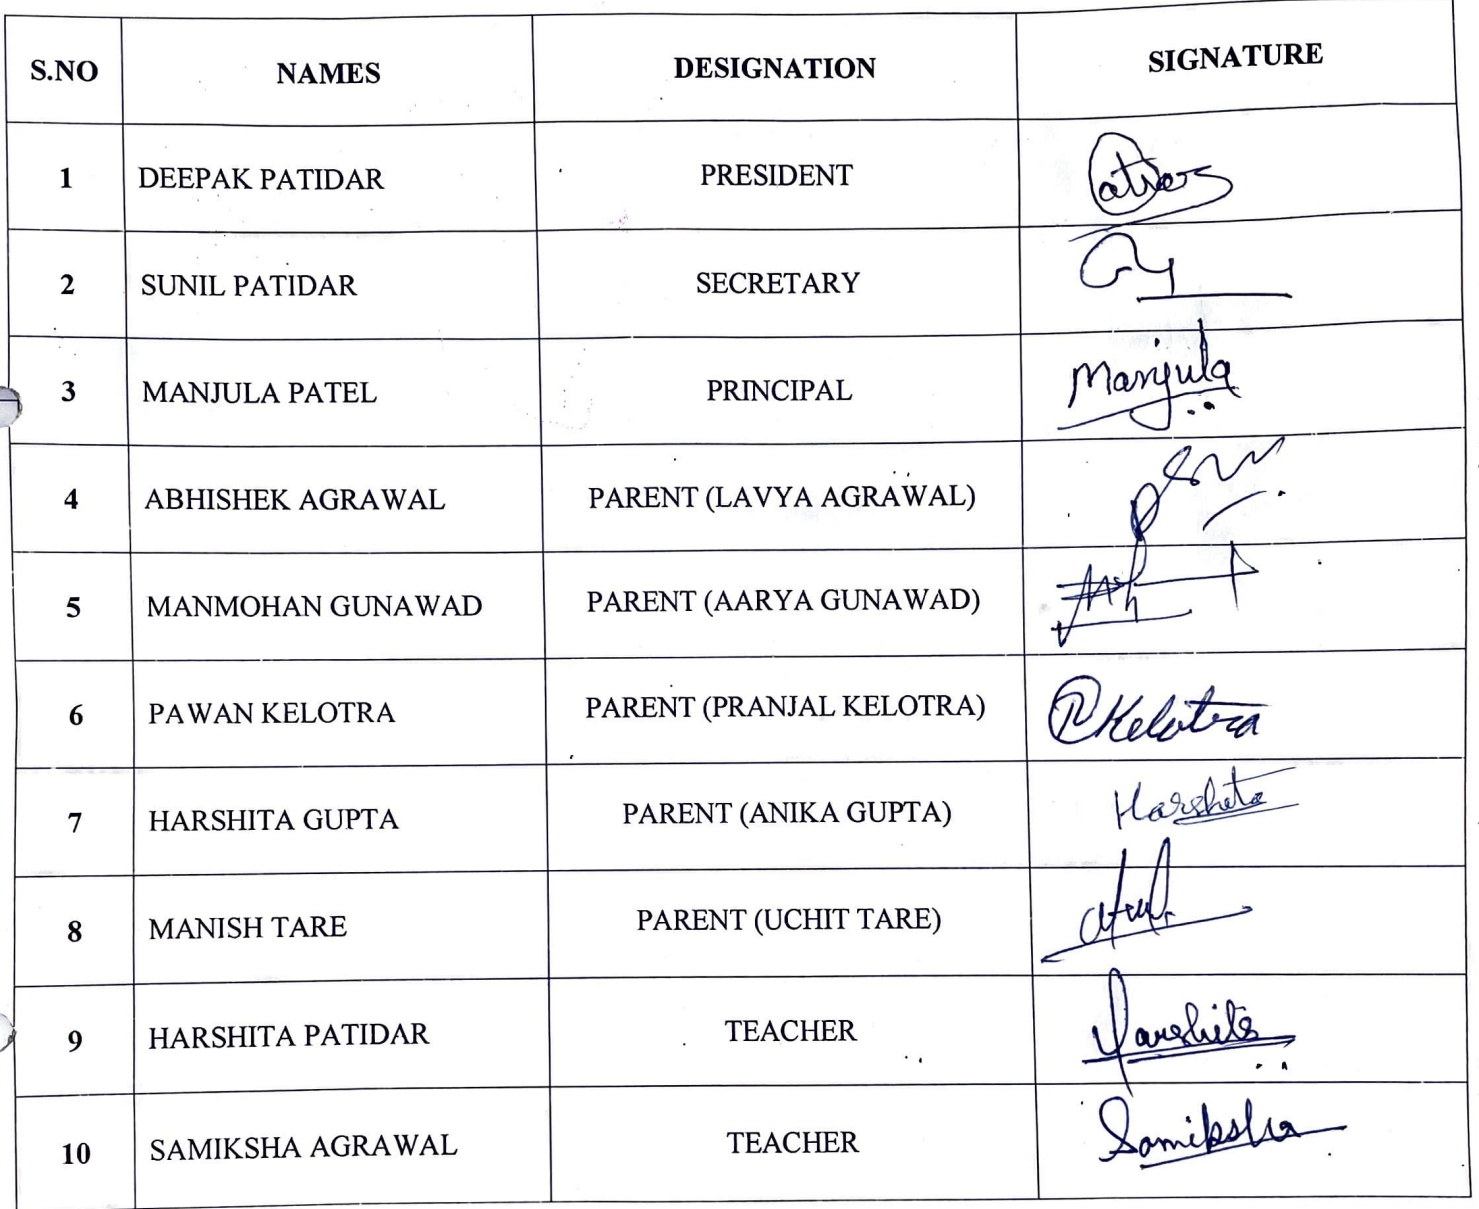 S.NO NAMES DESIGNATION SIGNATURE
1 DEEPAK PATIDAR PRESIDENT
2 SUNIL PATIDAR SECRETARY
3 MANJULA PATEL PRINCIPAL Manjula
4 ABHISHEK AGRAWAL PARENT (LAVYA AGRAWAL)
5 MANMOHAN GUNAWAD PARENT (AARYA GUNAWAD)
6 PAWAN KELOTRA PARENT (PRANJAL KELOTRA) PKelotra
7 HARSHITA GUPTA PARENT (ANIKA GUPTA) Harshita
8 MANISH TARE PARENT (UCHIT TARE)
9 HARSHITA PATIDAR TEACHER Harshita
10 SAMIKSHA AGRAWAL TEACHER Samiksha